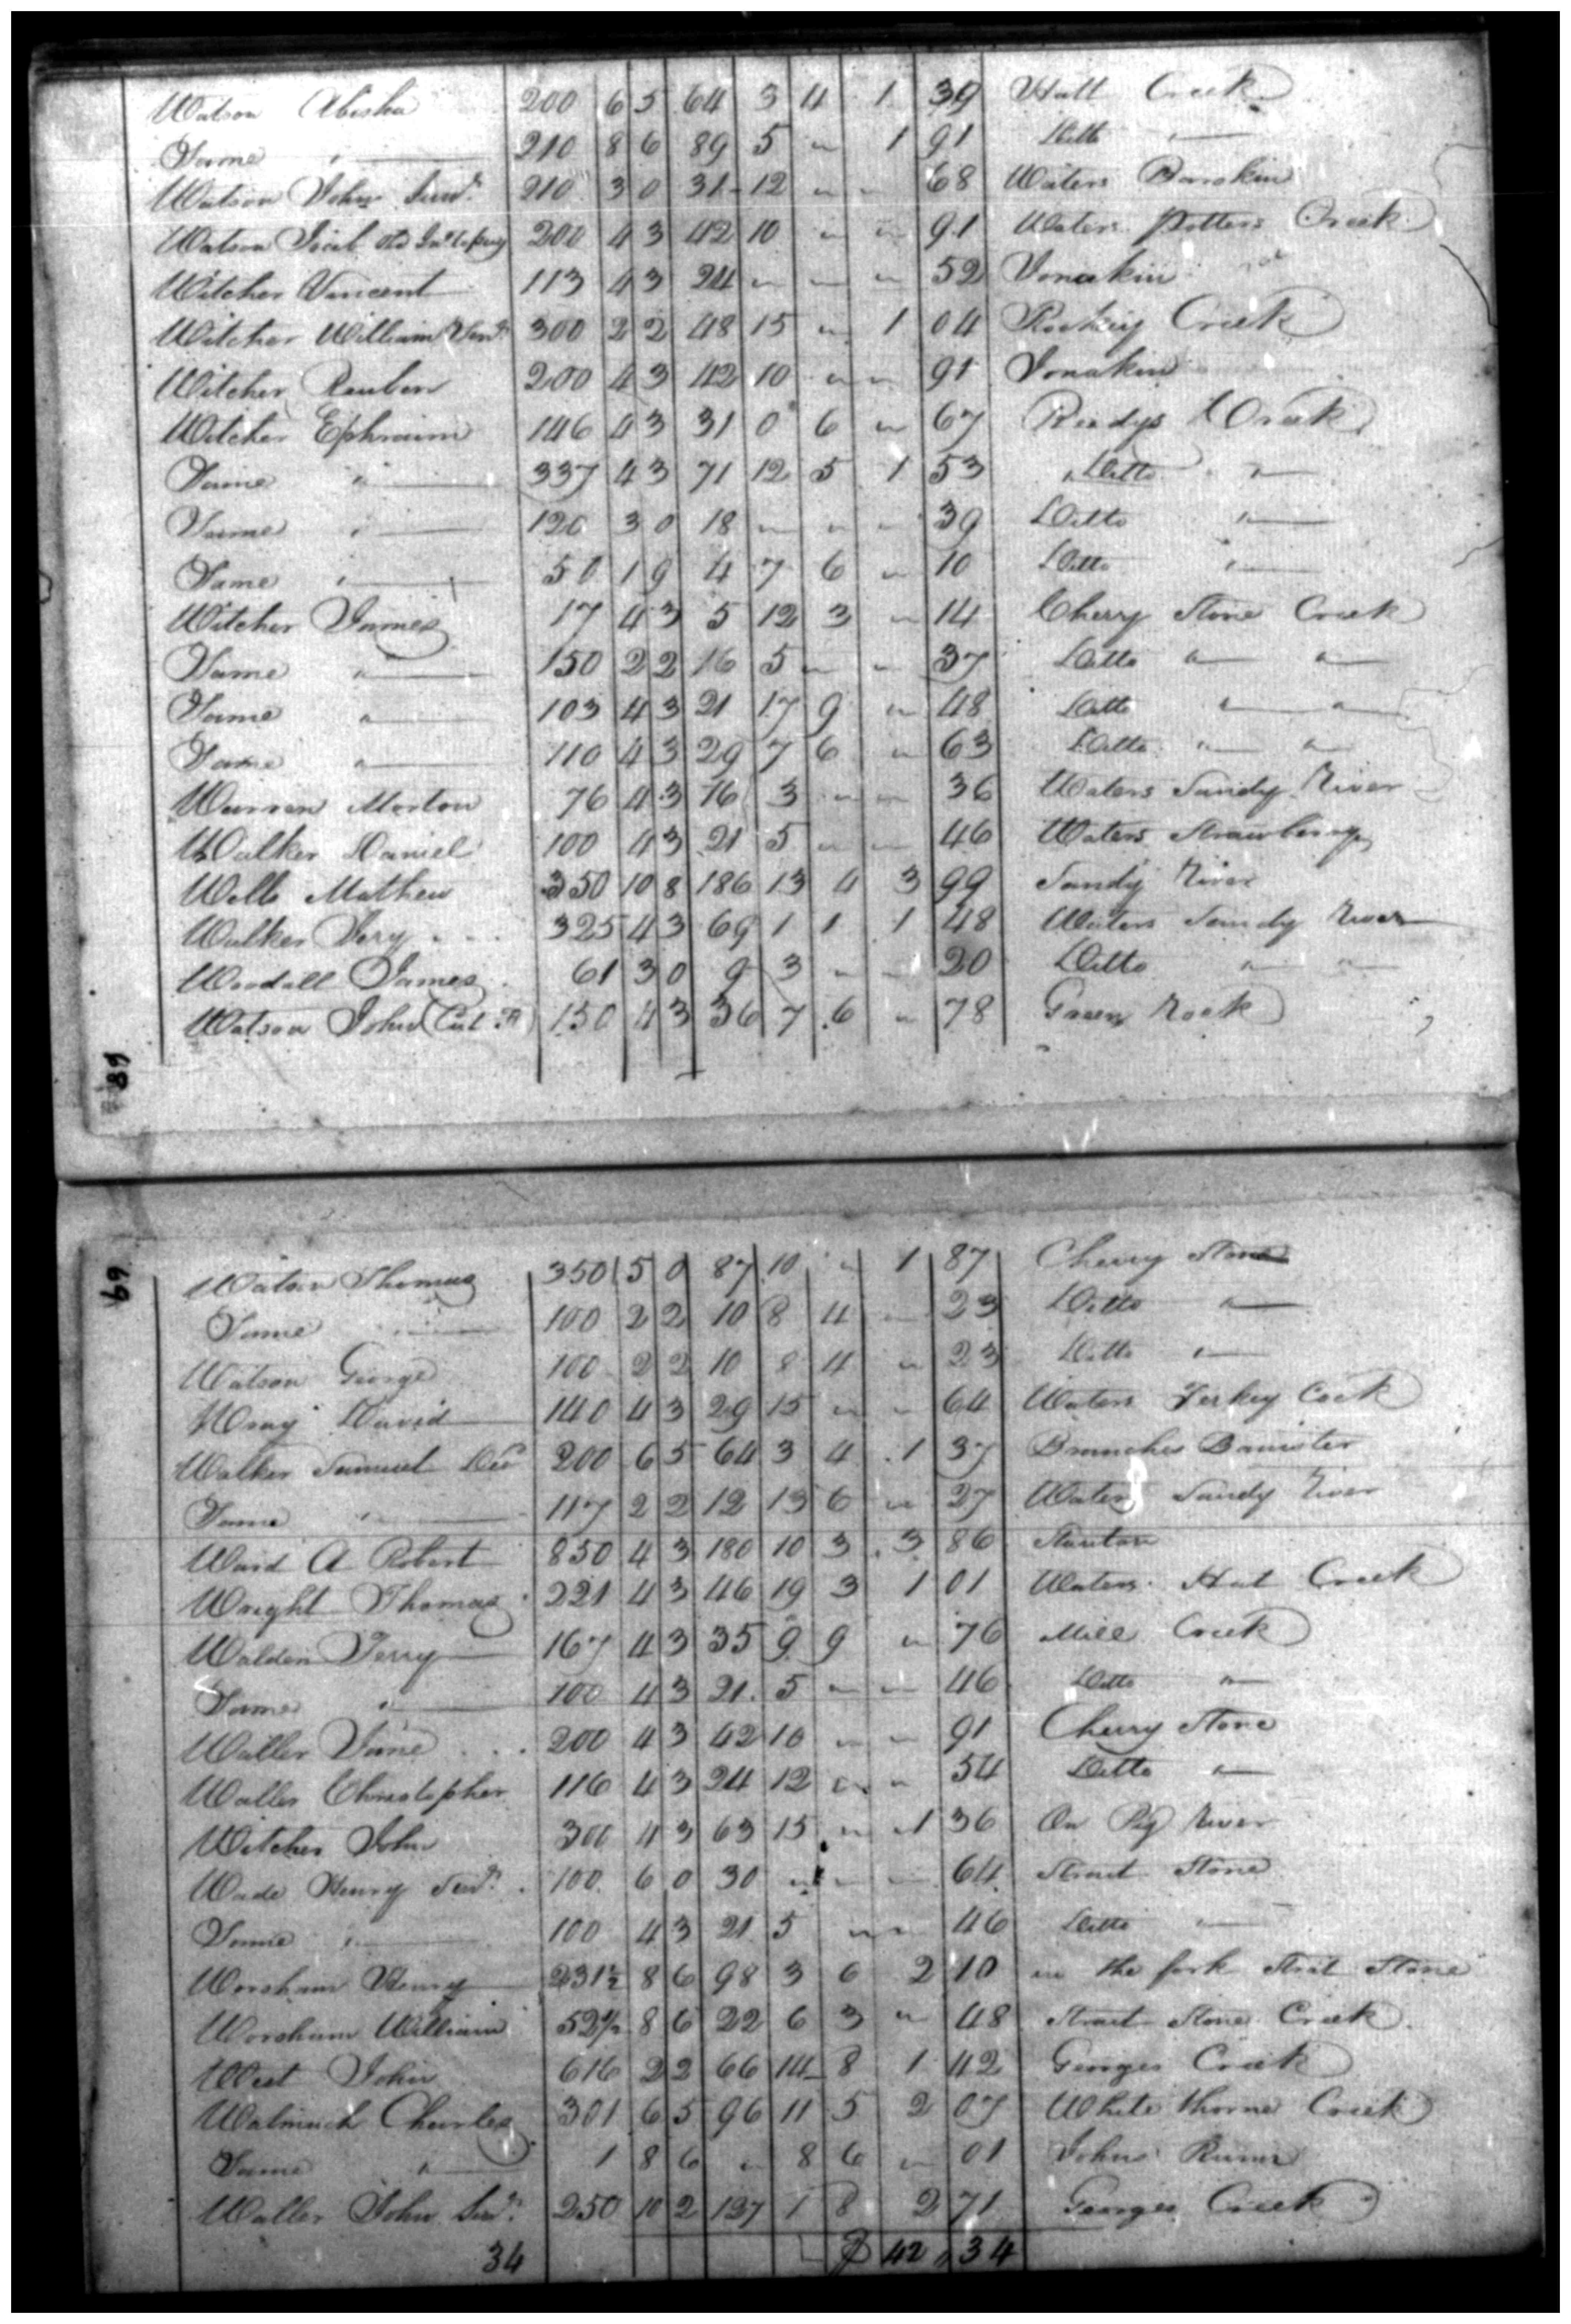 Watson Abisha 200 6 5 64 3 4 1 39 Hatt Creek
Same " 210 8 6 89 5 " 1 91 Ditto "
Watson John Senr. 210 3 0 31 12 " " 68 Waters Banskin
Watson 200 4 3 42 10 " " 91 Waters Potters Creek
Witcher Vincent 113 4 3 24 " " " 52 Tomakin
Witcher William Senr. 300 2 2 48 15 " 1 04 Rockey Creek
Witcher Reuben 200 4 3 42 10 " " 91 Tomakin
Witcher Ephraim 146 4 3 31 0 6 " 67 Reedys Creek
Same " 337 4 3 71 12 5 1 53 Ditto "
Same " 120 3 0 18 " " " 39 Ditto "
Same " 50 1 9 4 7 6 " 10 Ditto "
Witcher James 17 4 3 5 12 3 " 14 Cherry Stone Creek
Same " 150 2 2 16 5 " " 37 Ditto " "
Same " 103 4 3 21 17 9 " 48 Ditto " "
Same " 110 4 3 29 7 6 " 63 Ditto " "
Warren Morton 76 4 3 16 3 " " 36 Waters Sandy River
Walker Daniel 100 4 3 21 5 " " 46 Waters Strawberry
Wells Mathew 350 10 8 186 13 4 3 99 Sandy River
Walker Jery 325 4 3 69 1 1 1 48 Waters Sandy River
Woodall James 61 3 0 9 3 " " 20 Ditto " "
Watson John (Cut 150 4 3 36 7 6 " 78 Green Rock
68
69
Watson Thomas 350 5 0 87 10 " 1 87 Cherry Stone
Same " 100 2 2 10 8 4 " 23 Ditto "
Watson George 100 2 2 10 8 4 " 23 Ditto "
Wray David 140 4 3 29 15 " " 64 Waters Turkey Cock
Walker Samuel Decd 200 6 5 64 3 4 1 37 Branches Banister
Same " 117 2 2 12 13 6 " 27 Waters Sandy River
Ward A Robert 850 4 3 180 10 3 3 86 Stanton
Wright Thomas 221 4 3 46 19 3 1 01 Waters Hat Creek
Walden Jerry 167 4 3 35 9 9 " 76 Mill Creek
Same " 100 4 3 21 5 " " 46 Ditto "
Waller Jane 200 4 3 42 10 " " 91 Cherry Stone
Waller Christopher 116 4 3 24 12 " " 54 Ditto "
Witcher John 300 4 3 63 15 " 1 36 On Pig River
Wade Henry Senr. 100 6 0 30 " " " 64 Strait Stone
Same " 100 4 3 21 5 " " 46 Ditto "
Worsham Henry 231½ 8 6 98 3 6 2 10 in the fork Strait Stone
Worsham William 52½ 8 6 22 6 3 " 48 Strait Stone Creek
West John 616 2 2 66 14 8 1 42 Georges Creek
Walmack Charles 301 6 5 96 11 5 2 07 White thorne Creek
Same " 1 8 6 " 8 6 " 01 Johns Runn
Waller John Senr. 250 10 2 127 1 8 2 71 Georges Creek
34 $ 42 34